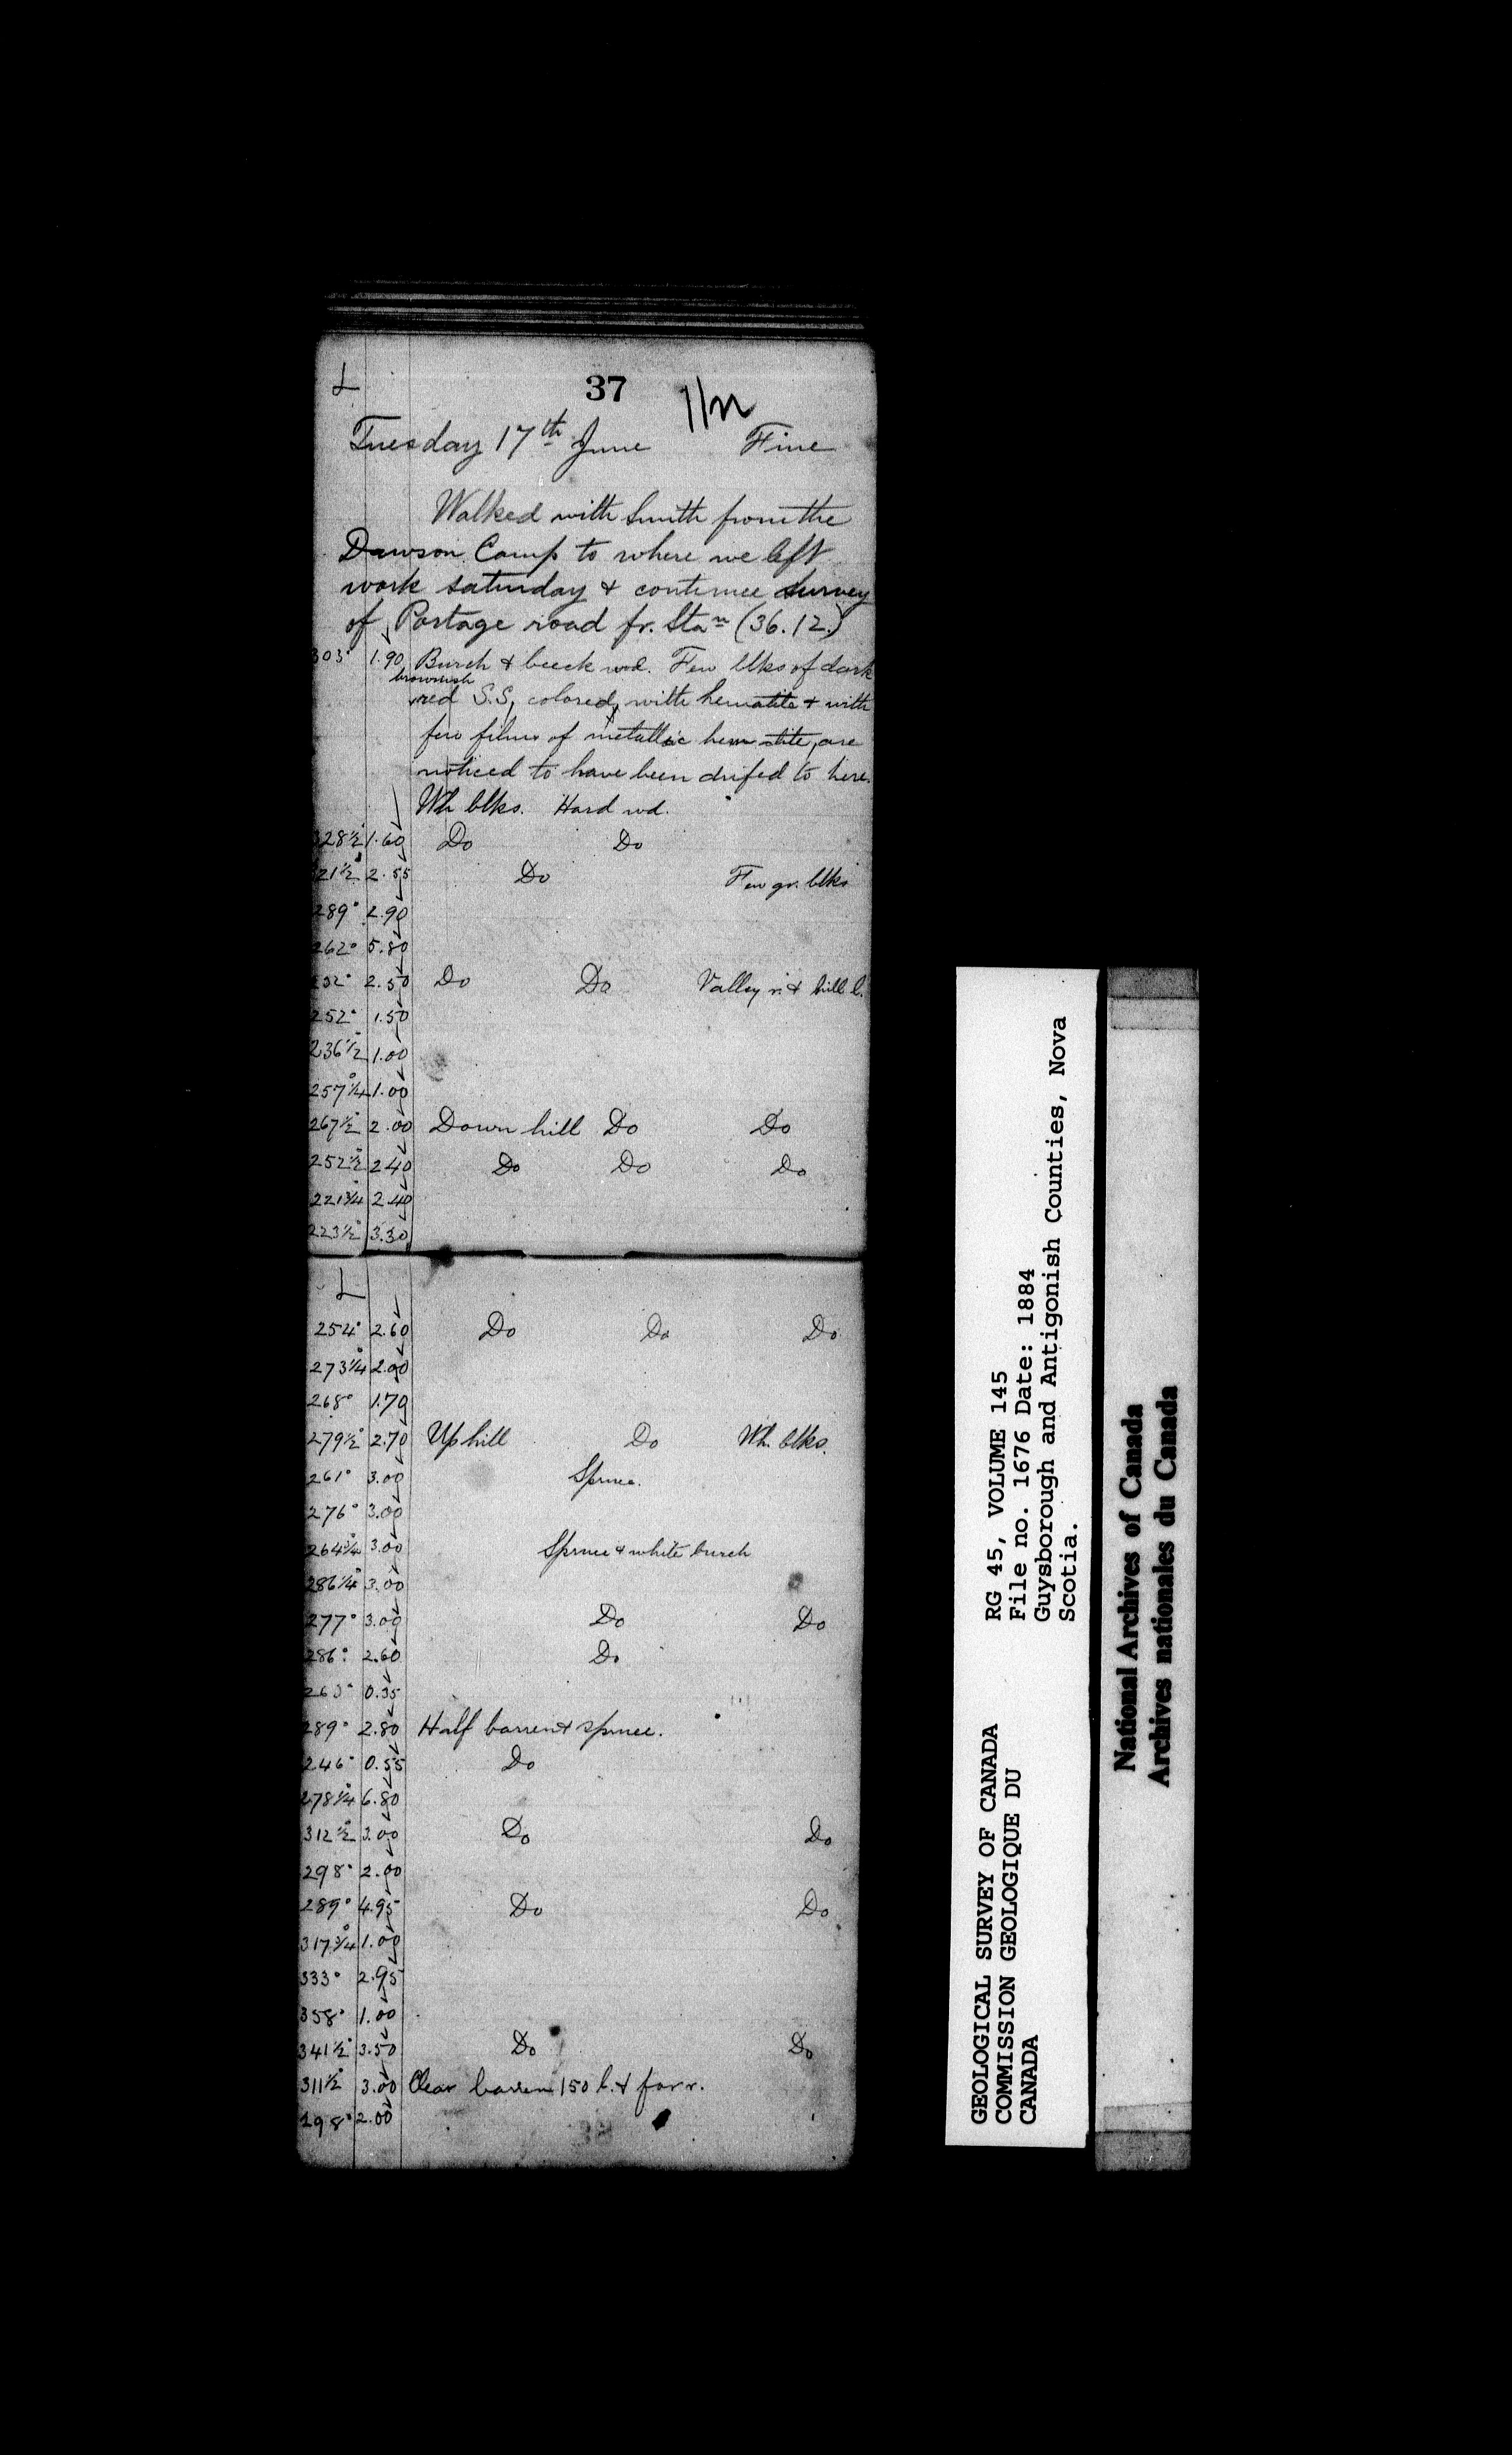 L
37
1/22
Tuesday 17th June Fine
Walked with Smith from the
Dawson Camp to where we left
work saturday & continue survey
of Portage road fr. Stan (36.12.)
303° 1.90 Burch & beech wd. Few blks of dark
brownish
red S.S, colored, with hematite & with
few films of metallic hematite, are
noticed to have been drifed to here.
Wh blks. Hard wd.
328½° 1.60 Do Do
21½° 2.55 Do Few gr. blks
289° 2.90
262° 5.80
232° 2.50 Do Do Valley r. & hill l.
252° 1.50
236½° 1.00
257¼° 1.00
267½° 2.00 Down hill Do Do
252½° 2.40 Do Do Do
221¾ 2.40
223½° 3.30
L
254° 2.60 Do Do Do
273¼° 2.00
268° 1.70
279½° 2.70 Up hill Do Wh. blks.
261° 3.00 Spruce.
276° 3.00
264¾° 3.00 Spruce & white burch
286¼° 3.00
277° 3.00 Do Do
286° 2.60 Do
263° 0.35
289° 2.80 Half barren & spruce.
246° 0.55 Do
278¼° 6.80
312½° 3.00 Do Do
298° 2.00
289° 4.95 Do Do
317¾° 1.00
333° 2.95
358° 1.00
341½° 3.50 Do Do
311½° 3.00 Clear barren 150 l. & far r.
298° 2.00
GEOLOGICAL SURVEY OF CANADA
COMMISSION GEOLOGIQUE DU
CANADA
RG 45, VOLUME 145
File no. 1676 Date: 1884
Guysborough and Antigonish Counties, Nova
Scotia.
National Archives of Canada
Archives nationales du Canada